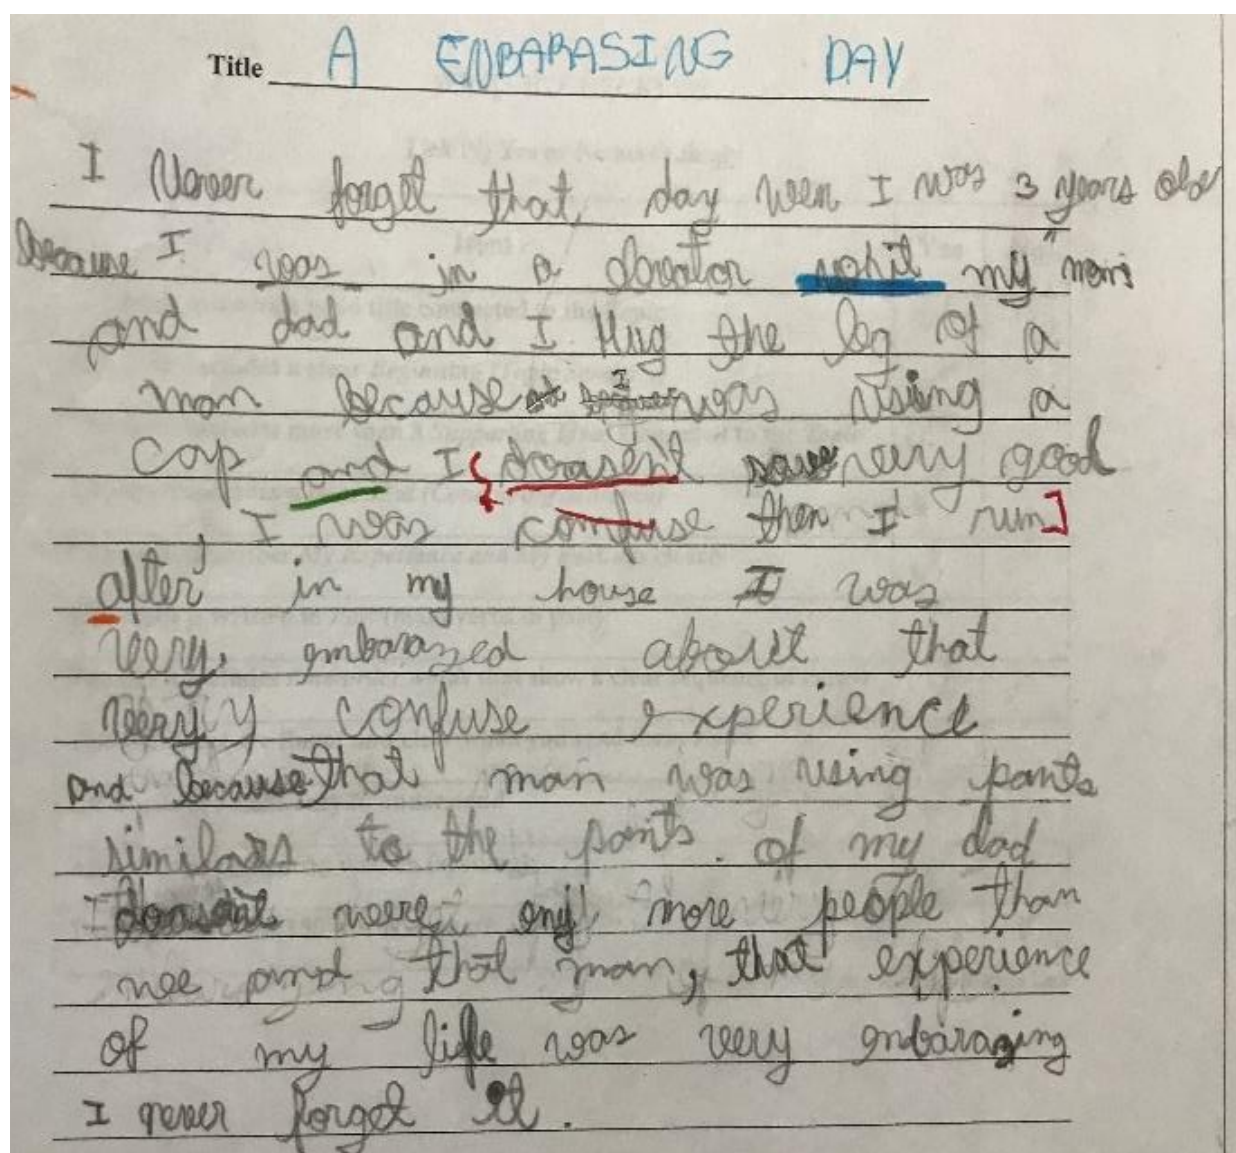 Title A ENBARASING DAY
I Never forget that day wen I was 3 years old
because I was in a elevator whit my mom
and dad and I Hug the leg of a
man because I was using a
cap and I doasent saw very good
, I was confuse then I run]
after, in my house I was
very, embarazed about that
very confuse experience
and because that man was using pants
similars to the pants of my dad
I were eny more people than
mee and that man, that experience
of my life was very enbarazing
I never forget it.